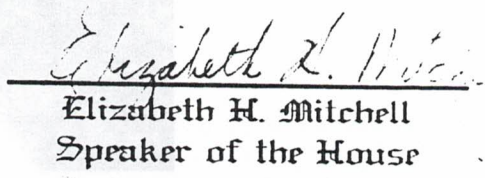 Elizabeth H. Mitchell
Elizabeth H. Mitchell
Speaker of the House